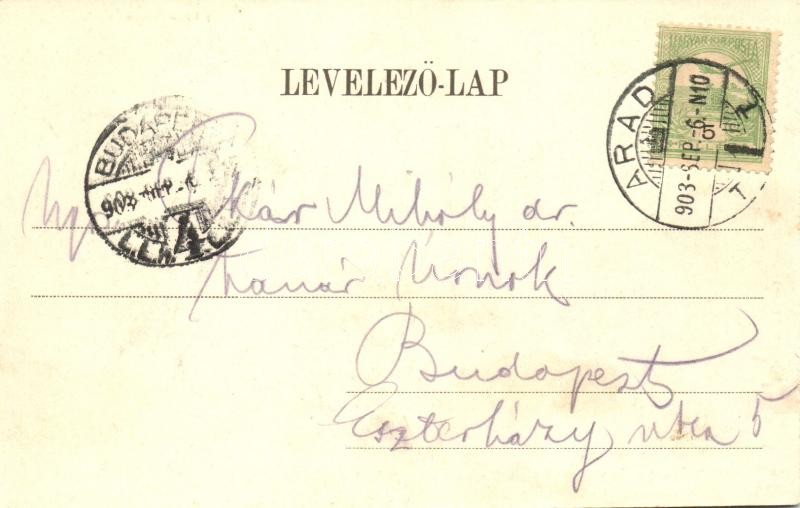 MAGYAR KIR. POSTA
LEVELEZŐ-LAP
ARAD
903-SEP.-6-N10
1
BUDAPEST
903-SEP.-6
4
Mihály dr.
tanár Úrnak
Budapest
Eszterházy utca 5